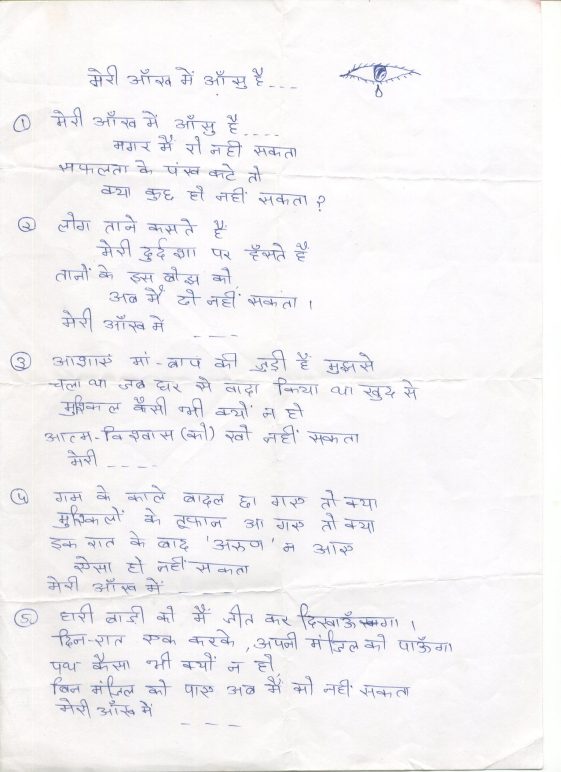 मेरी आँख में आँसु है....
① मेरी आँख में आँसु है....
मगर मैं रो नहीं सकता
सफलता के पंख कटे तो
क्या कुछ हो नहीं सकता ?
② लोग ताने कसते है
मेरी दुर्दशा पर हँसते है
तानों के इस बोझ को
अब मैं ढो नहीं सकता ।
मेरी आँख में ----
③ आशाएं मां-बाप की जुड़ी हैं मुझसे
चला था जब घर से वादा किया था खुद से
मुश्किल कैसी भी क्यों न हो
आत्म-विश्वास (को) खो नहीं सकता
मेरी ----
④ गम के काले बादल छा गए तो क्या
मुश्किलों के तूफान आ गए तो क्या
इक रात के बाद 'अरुण' न आए
ऐसा हो नहीं सकता
मेरी आँख में ----
⑤ हारी बाजी को मैं जीत कर दिखाऊँगा ।
दिन-रात एक करके, अपनी मंजिल को पाऊँगा
पथ कैसा भी क्यों न हो
बिन मंजिल को पाए अब मैं सो नहीं सकता
मेरी आँख में ----